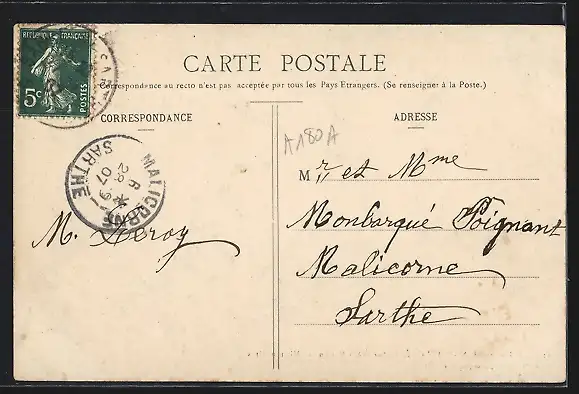 REPUBLIQUE FRANÇAISE
5c POSTES
CARTE POSTALE
Correspondance au recto n'est pas acceptée par tous les Pays Etrangers. (Se renseigner à la Poste.)
CORRESPONDANCE
ADRESSE
A180A
MALICORNE
SARTHE
28
07
M. Leroy
Mr et Mme
Monbarqué Poignant
Malicorne
Sarthe